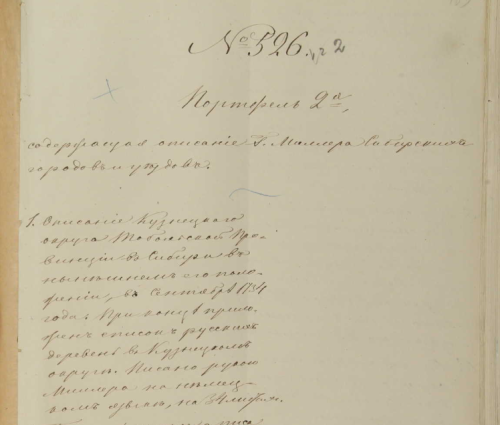 № 526. ч. 2
Портфель 2й,
содержащая описаніе Г. Миллера Сибирскихъ
городовъ и уѣздовъ.
1. Описаніе Кузнецкаго
округа Тобольской Про-
винціи въ Сибири въ
нынѣшнемъ его поло-
женіи, въ Сентябрѣ 1734
года; При концѣ прило-
женъ списокъ русскихъ
деревень въ Кузнецкомъ
округѣ. Писано рукою
Миллера на нѣмец-
комъ языкѣ, на 34 листах.